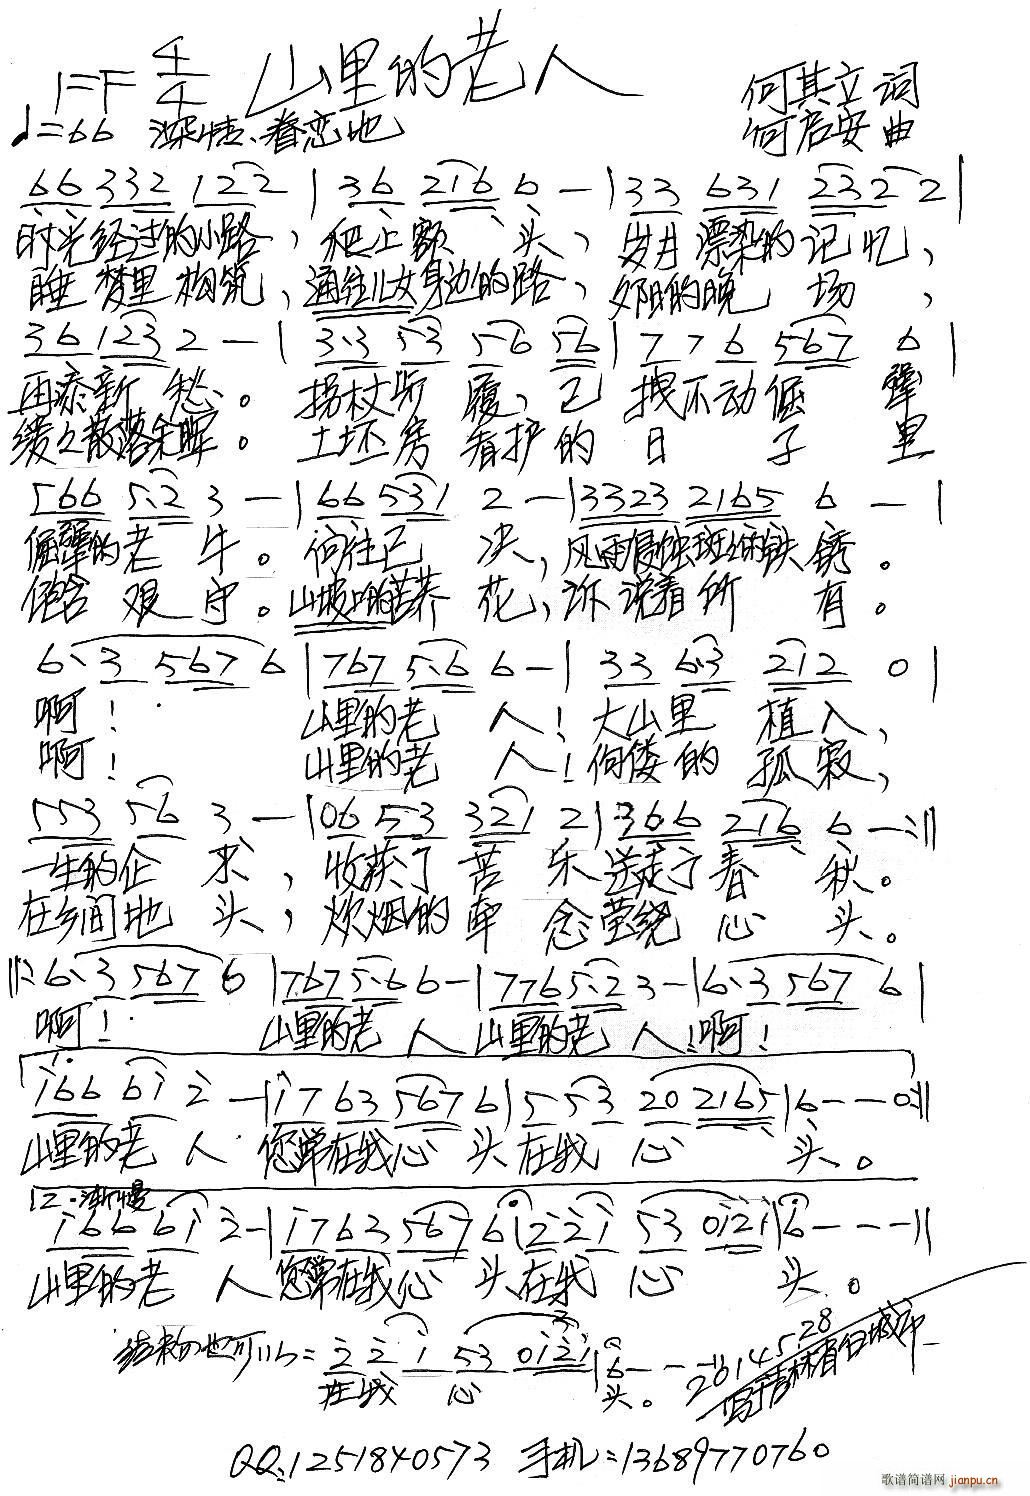 山里的老人
1=F 4/4
何其立 词
♩=66 深情、眷恋地
何启安 曲
66 332 122 | 36 216 6 - | 33 631 232 2 |
时光经过的小路，爬上额头，岁月漂染的记忆，
睡梦里构筑，通往儿女身边的路，夕阳的晚场，
36 123 2 - | 3·3 53 56 56 | 7 7 6 567 6 |
再添新愁。拐杖所履，已拽不动倔犟
缓缓散落余晖。土坯房看护的日子里
566 5·2 3 - | 66 531 2 - | 3323 2165 6 - |
倔犟的老牛。向往已决，风雨侵蚀斑斓铁锈。
包含艰守。山坡的苦荞花，诉说着所有。
6·3 567 6 | 767 5·6 6 - | 33 6·3 212 0 |
啊！山里的老人！大山里植入，
啊！山里的老人！佝偻的孤寂，
553 56 3 - | 06 53 321 2 | 366 216 6 - :||
一生的企求，收获了苦乐送走了春秋。
在乡间地头，炊烟的牵念萦绕心头。
||: 6·3 567 6 | 767 5·6 6 - | 776 5·2 3 - | 6·3 567 6 |
啊！山里的老人山里的老人！啊！
1.
i66 6i 2 - | i763 567 6 | 5 53 20 2165 | 6 - - 0 :||
山里的老人您常在我心头在我心头。
2.渐慢
i66 6i 2 - | i763 567 6 | 2 2 i 53 0i2i | 6 - - - ||
山里的老人您常在我心头在我心头。
结束句也可以= 2 2 i 53 0i2i | 6 - - - ||
在我心头。
2014 5 28
写于吉林省白城市
QQ:1251840573 手机=13689770760
歌谱简谱网 jianpu.cn